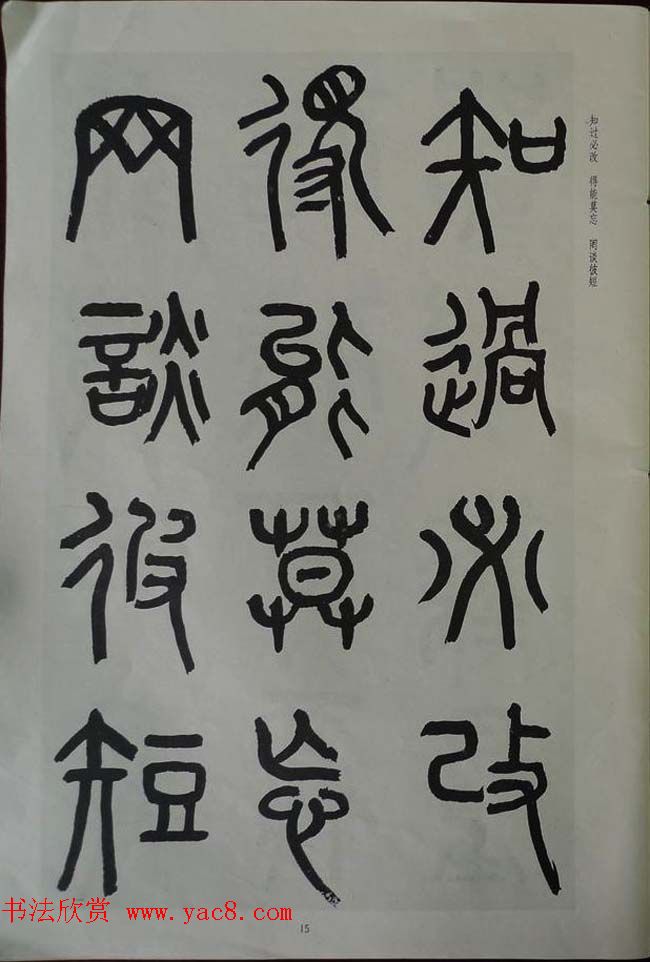 知过必改 得能莫忘 罔谈彼短
知過必改
得能莫忘
网談彼短
书法欣赏 www.yac8.com
15